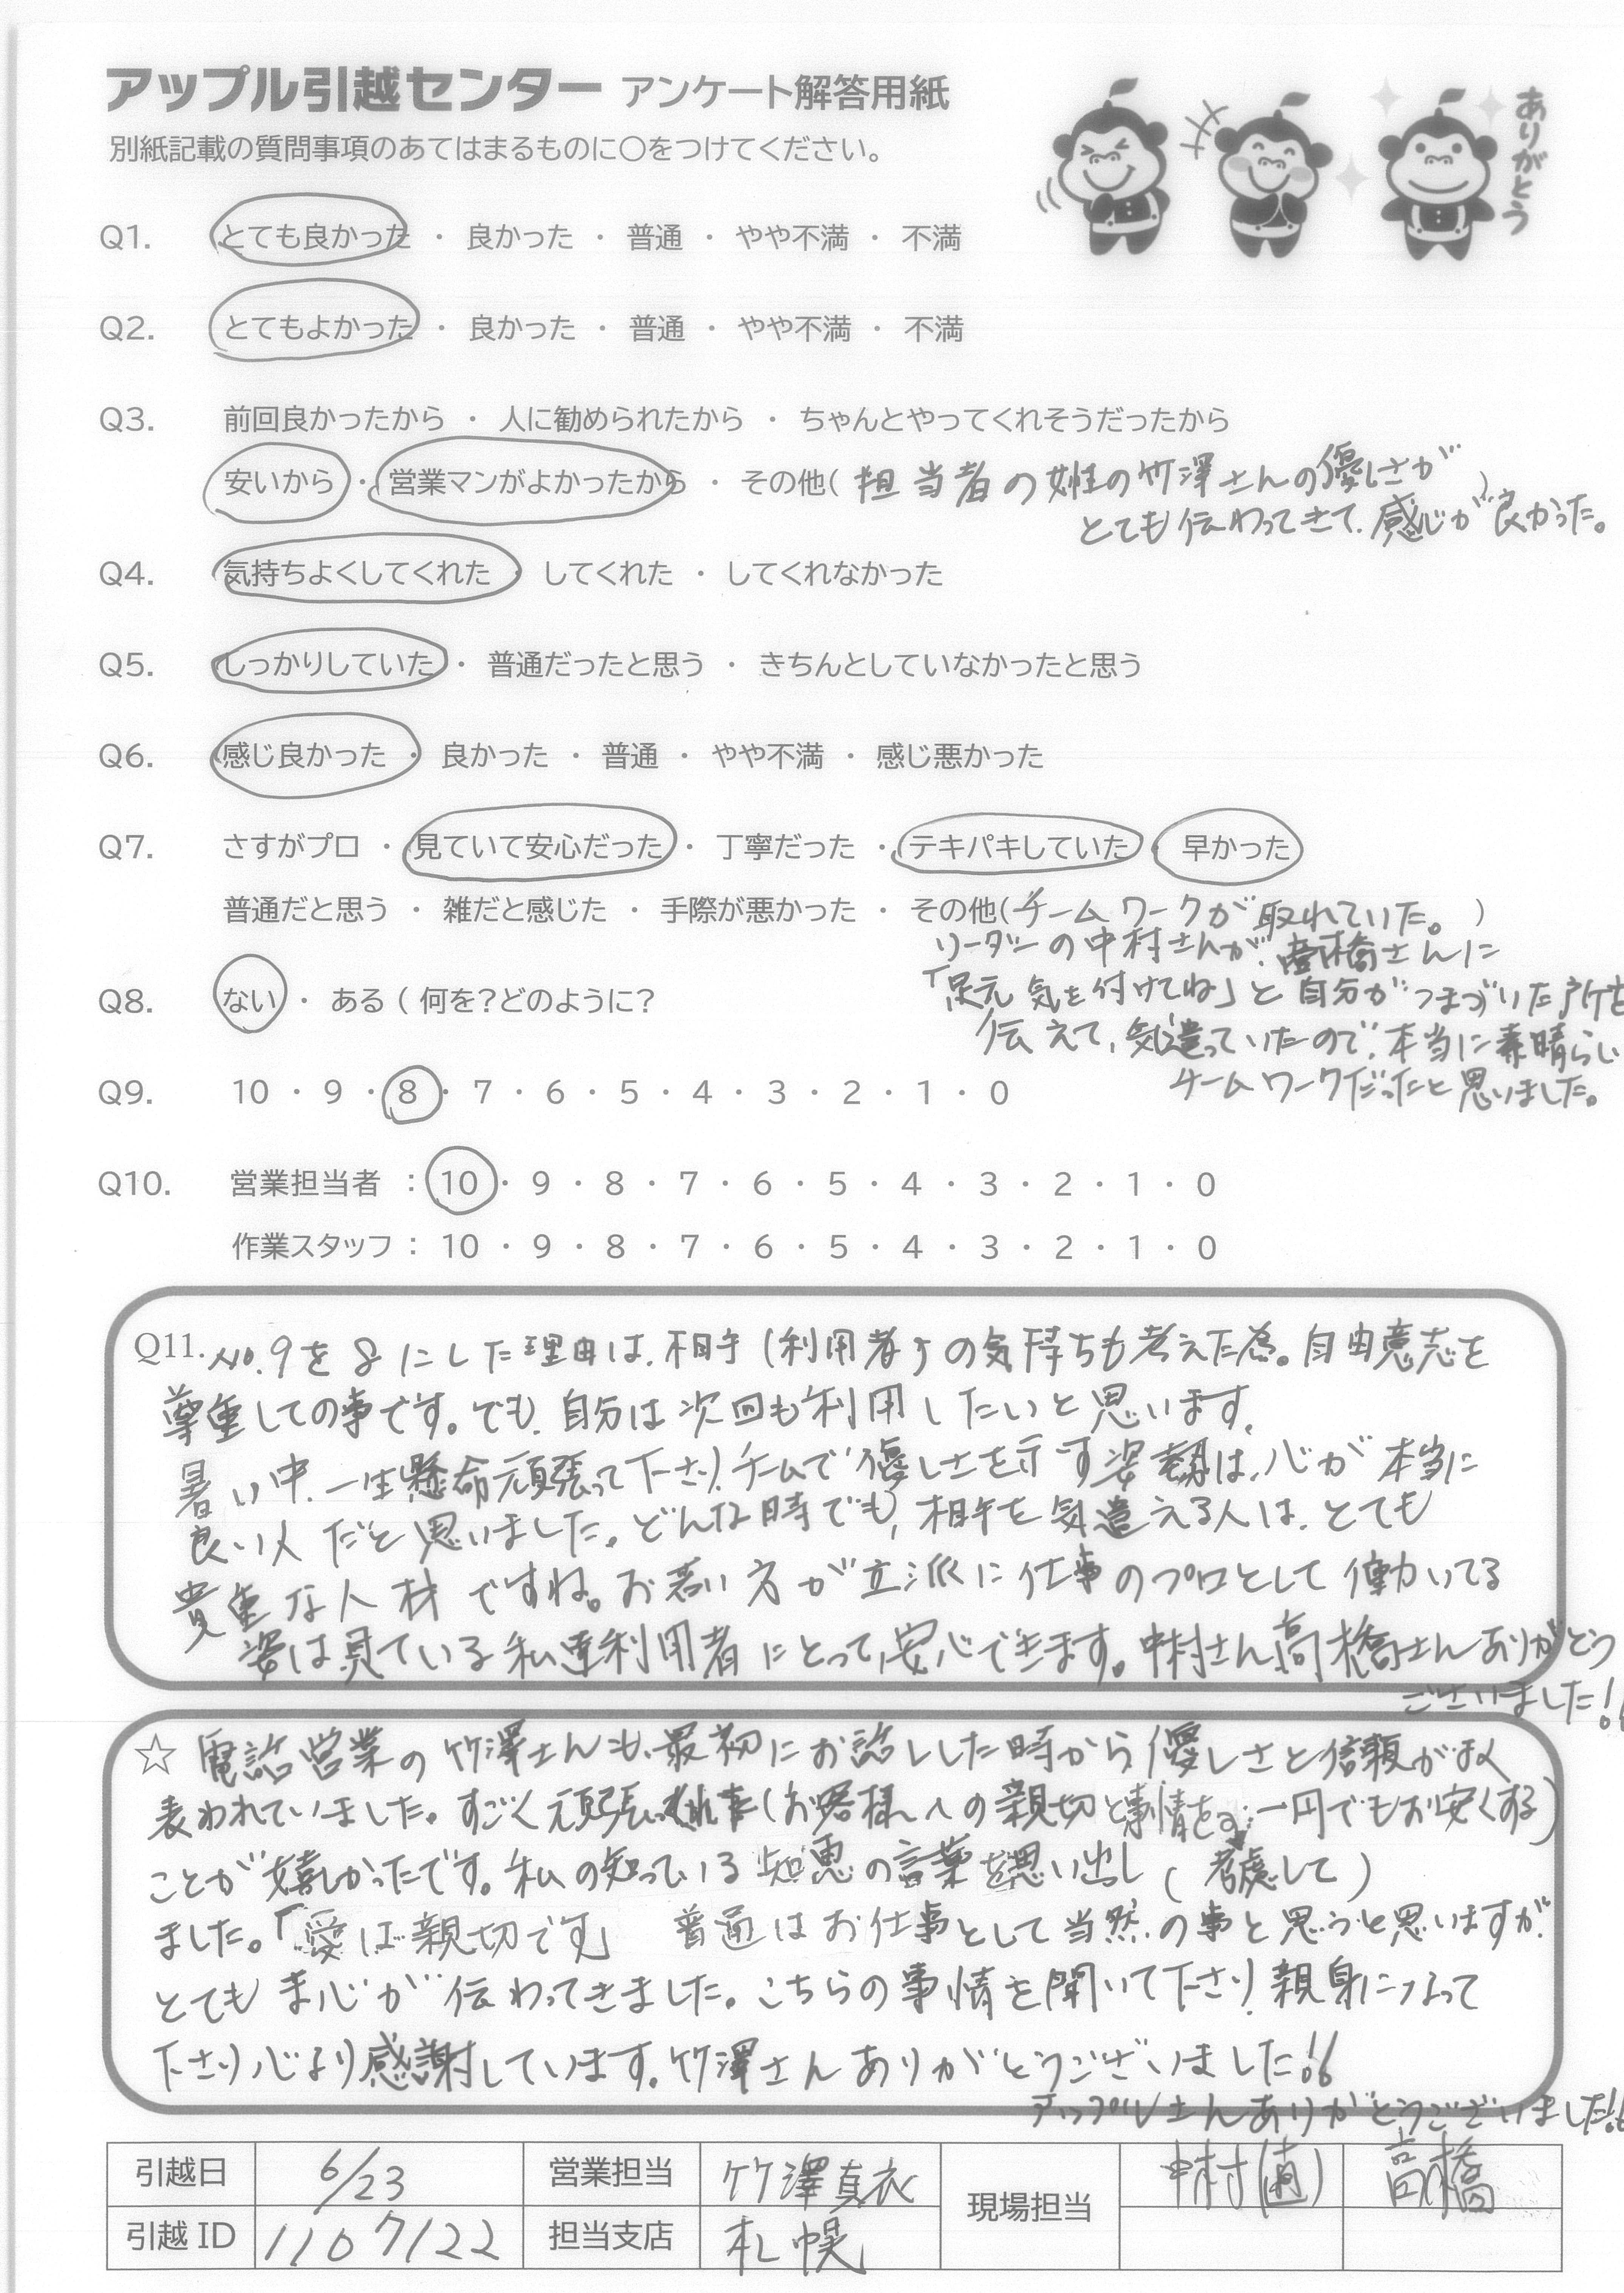 アップル引越センター アンケート解答用紙
ありがとう
別紙記載の質問事項のあてはまるものに○をつけてください。
Q1. とても良かった ・ 良かった ・ 普通 ・ やや不満 ・ 不満
Q2. とてもよかった ・ 良かった ・ 普通 ・ やや不満 ・ 不満
Q3. 前回良かったから ・ 人に勧められたから ・ ちゃんとやってくれそうだったから
安いから ・ 営業マンがよかったから ・ その他( 担当者の女性の竹澤さんの優しさが )
とても伝わってきて、感じが良かった。
Q4. 気持ちよくしてくれた ・ してくれた ・ してくれなかった
Q5. しっかりしていた ・ 普通だったと思う ・ きちんとしていなかったと思う
Q6. 感じ良かった ・ 良かった ・ 普通 ・ やや不満 ・ 感じ悪かった
Q7. さすがプロ ・ 見ていて安心だった ・ 丁寧だった ・ テキパキしていた ・ 早かった
普通だと思う ・ 雑だと感じた ・ 手際が悪かった ・ その他(チームワークが取れていた。 )
リーダーの中村さんが、高橋さんに
「足元気を付けてね」と自分がつまづいた所を
Q8. ない ・ ある ( 何を?どのように?
伝えて、気遣っていたので、本当に素晴らしい
チームワークだったと思いました。
Q9. 10 ・ 9 ・ 8 ・ 7 ・ 6 ・ 5 ・ 4 ・ 3 ・ 2 ・ 1 ・ 0
Q10. 営業担当者 : 10 ・ 9 ・ 8 ・ 7 ・ 6 ・ 5 ・ 4 ・ 3 ・ 2 ・ 1 ・ 0
作業スタッフ : 10 ・ 9 ・ 8 ・ 7 ・ 6 ・ 5 ・ 4 ・ 3 ・ 2 ・ 1 ・ 0
Q11. No.9を8にした理由は、相手(利用者)の気持ちも考えた為。自由意志を
尊重しての事です。でも、自分は次回も利用したいと思います。
暑い中、一生懸命頑張って下さり、チームで優しさを示す姿勢は、心が本当に
良い人だと思いました。どんな時でも、相手を気遣える人は、とても
貴重な人材ですね。お若い方が立派に仕事のプロとして働いてる
姿は見ている私達利用者にとって、安心できます。中村さん高橋さんありがとう
ございました!!
☆ 電話営業の竹澤さんも、最初にお話しした時から、優しさと信頼がよく
表われていました。すごく頑張って(お客様への親切と事情を 一円でもお安くする)
ことが嬉しかったです。私の知っている知恵の言葉を思い出し (考慮して)
ました。「愛は親切です」 普通はお仕事として当然の事と思うと思いますが、
とてもま心が伝わってきました。こちらの事情を聞いて下さり、親身になって
下さり心より感謝しています。竹澤さんありがとうございました!!
アップルさんありがとうございました!!
引越日 6/23 営業担当 竹澤真衣 現場担当 中村 高橋
引越ID 1107122 担当支店 札幌